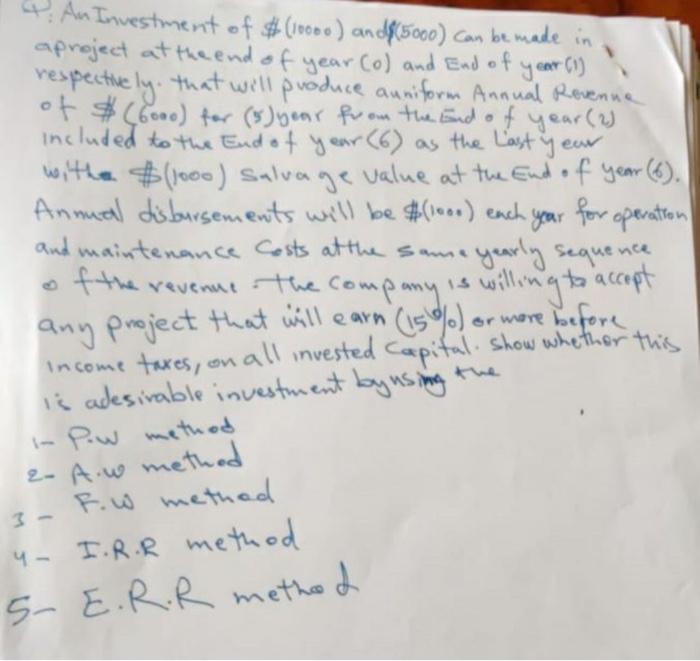 Q: An Investment of $(10000) and $(5000) can be made in
a project at the end of year (0) and End of year (1)
respectively. that will produce a uniform Annual Revenue
of $(6000) for (5) year from the End of year (2)
included to the End of year (6) as the Last year
with $(1000) Salvage value at the End of year (6).
Annual disbursements will be $(1000) each year for operation
and maintenance Costs at the same yearly sequence
of the revenue. The Company is willing to accept
any project that will earn (15%) or more before
income taxes, on all invested Capital. show whether this
is a desirable investment by using the
1- P.W method
2- A.W method
3- F.W method
4- I.R.R method
5- E.R.R method